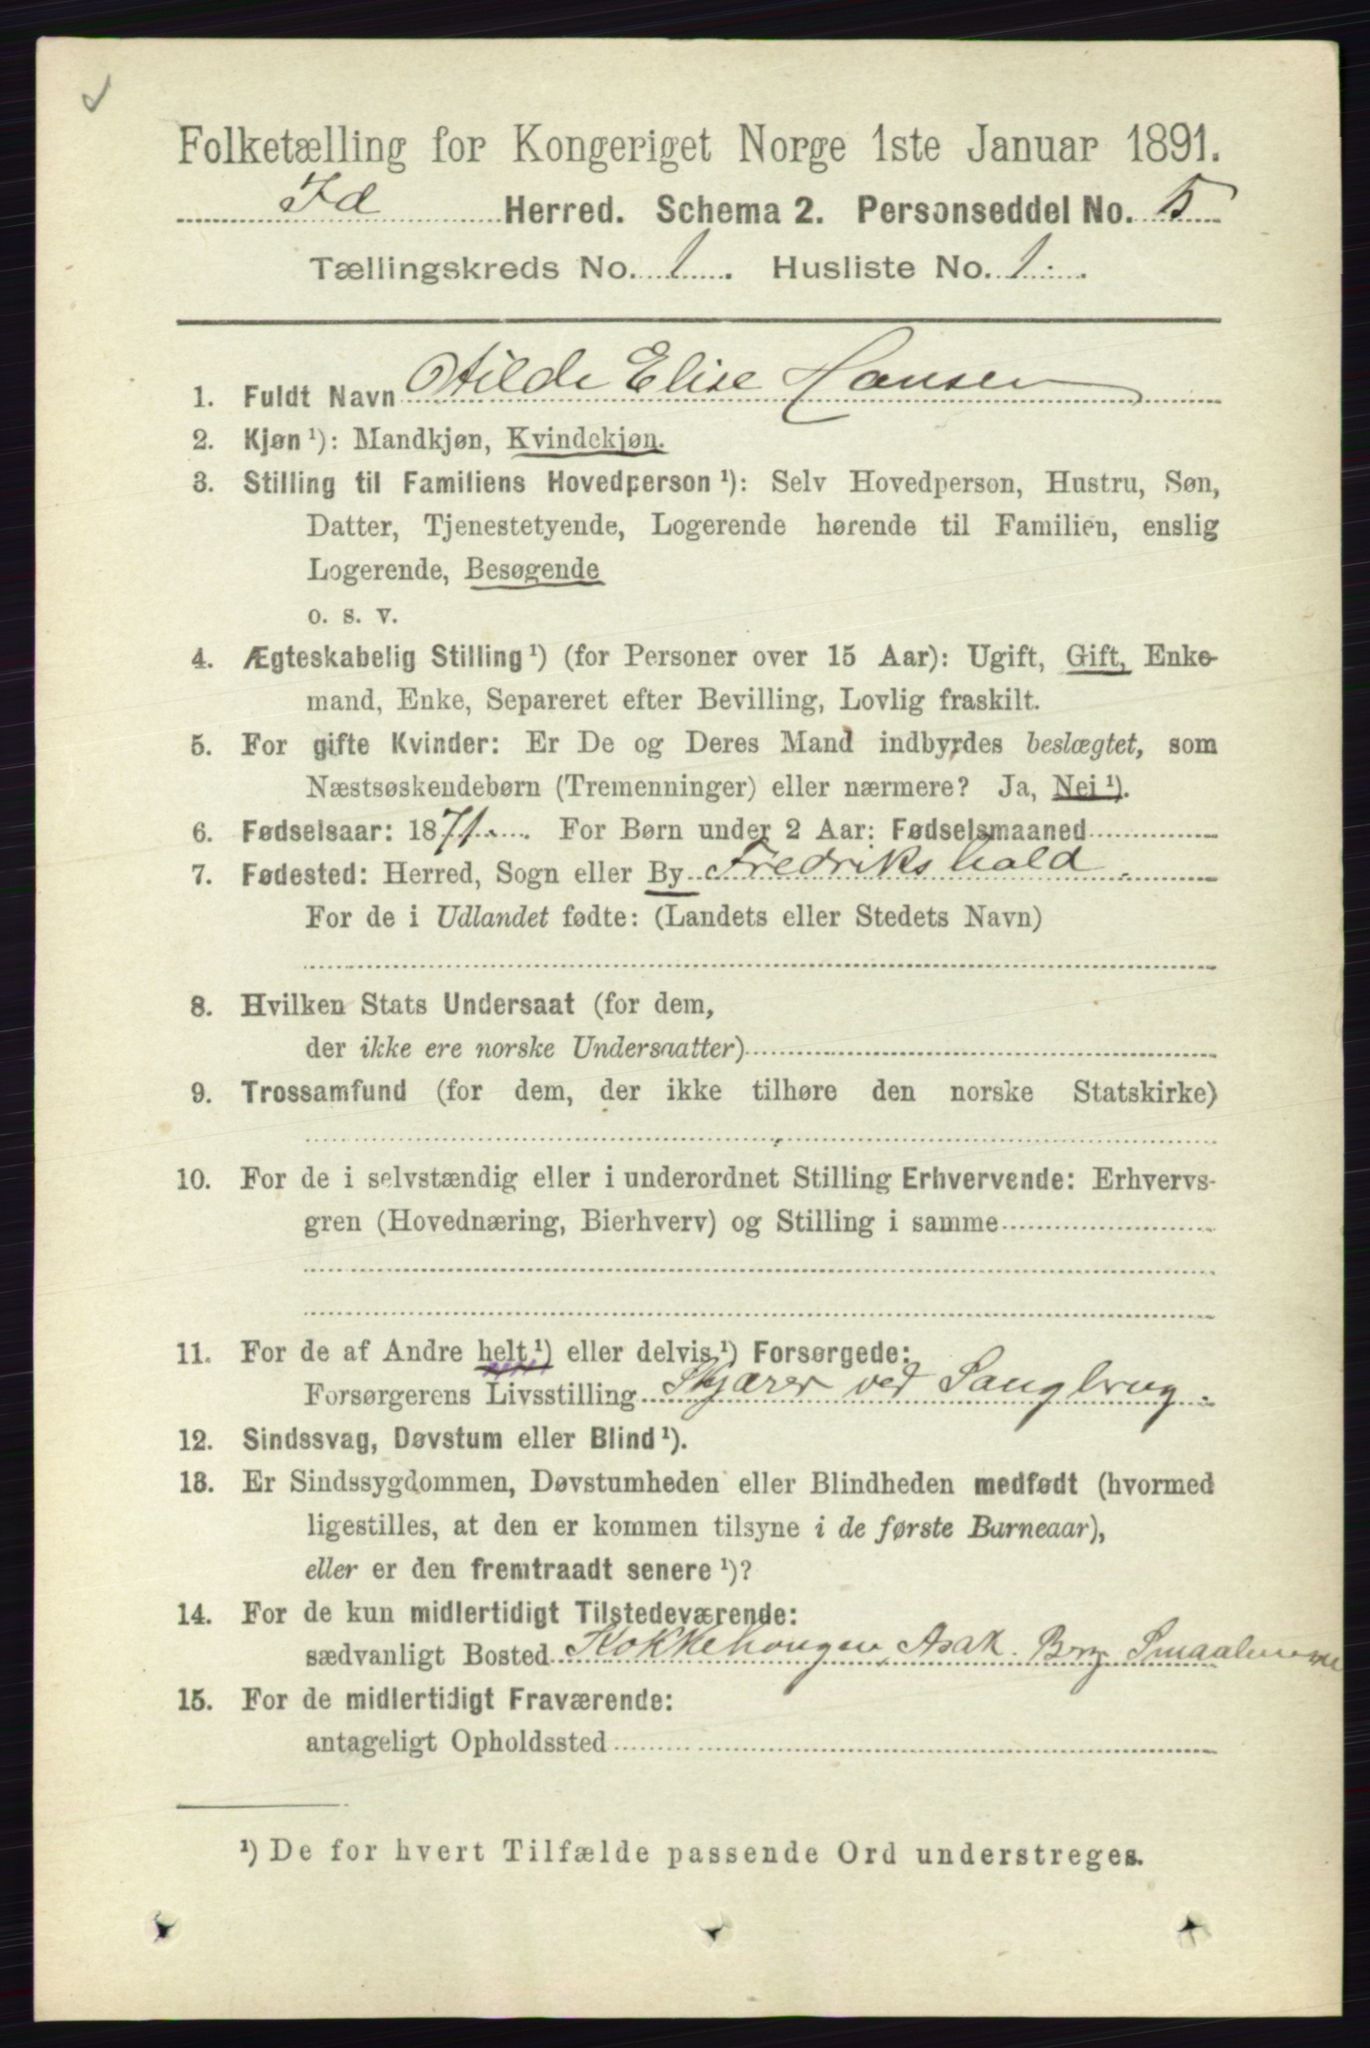 Folketælling for Kongeriget Norge 1ste Januar 1891.
Id Herred. Schema 2. Personseddel No. 5
Tællingskreds No. 1. Husliste No. 1.
1. Fuldt Navn Otilde Elise Hansen
2. Kjøn ¹): Mandkjøn, Kvindekjøn.
3. Stilling til Familiens Hovedperson ¹): Selv Hovedperson, Hustru, Søn,
Datter, Tjenestetyende, Logerende hørende til Familien, enslig
Logerende, Besøgende
o. s. v.
4. Ægteskabelig Stilling ¹) (for Personer over 15 Aar): Ugift, Gift, Enke-
mand, Enke, Separeret efter Bevilling, Lovlig fraskilt.
5. For gifte Kvinder: Er De og Deres Mand indbyrdes beslægtet, som
Næstsøskendebørn (Tremenninger) eller nærmere? Ja, Nei ¹).
6. Fødselsaar: 1871. For Børn under 2 Aar: Fødselsmaaned
7. Fødested: Herred, Sogn eller By Fredrikshald.
For de i Udlandet fødte: (Landets eller Stedets Navn)
8. Hvilken Stats Undersaat (for dem,
der ikke ere norske Undersaatter)
9. Trossamfund (for dem, der ikke tilhøre den norske Statskirke)
10. For de i selvstændig eller i underordnet Stilling Erhvervende: Erhvervs-
gren (Hovednæring, Bierhverv) og Stilling i samme
11. For de af Andre helt ¹) eller delvis ¹) Forsørgede:
Forsørgerens Livsstilling Skjærer ved Saugbrug.
12. Sindssvag, Døvstum eller Blind ¹).
13. Er Sindssygdommen, Døvstumheden eller Blindheden medfødt (hvormed
ligestilles, at den er kommen tilsyne i de første Barneaar),
eller er den fremtraadt senere ¹)?
14. For de kun midlertidigt Tilstedeværende:
sædvanligt Bosted Kokkehougen, Asak. Berg Smaalenene
15. For de midlertidigt Fraværende:
antageligt Opholdssted
¹) De for hvert Tilfælde passende Ord understreges.